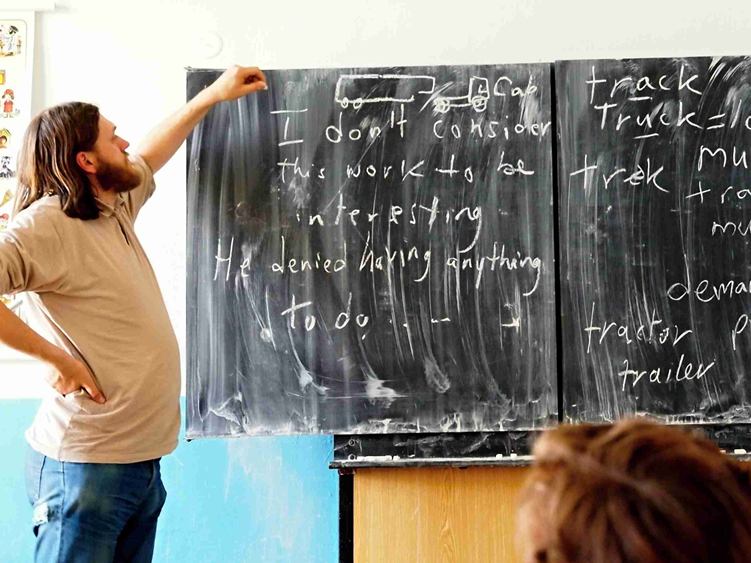 Cab
I don't consider
this work to be
interesting
He denied having anything
to do
track
Truck =
trek
demar
tractor
trailer